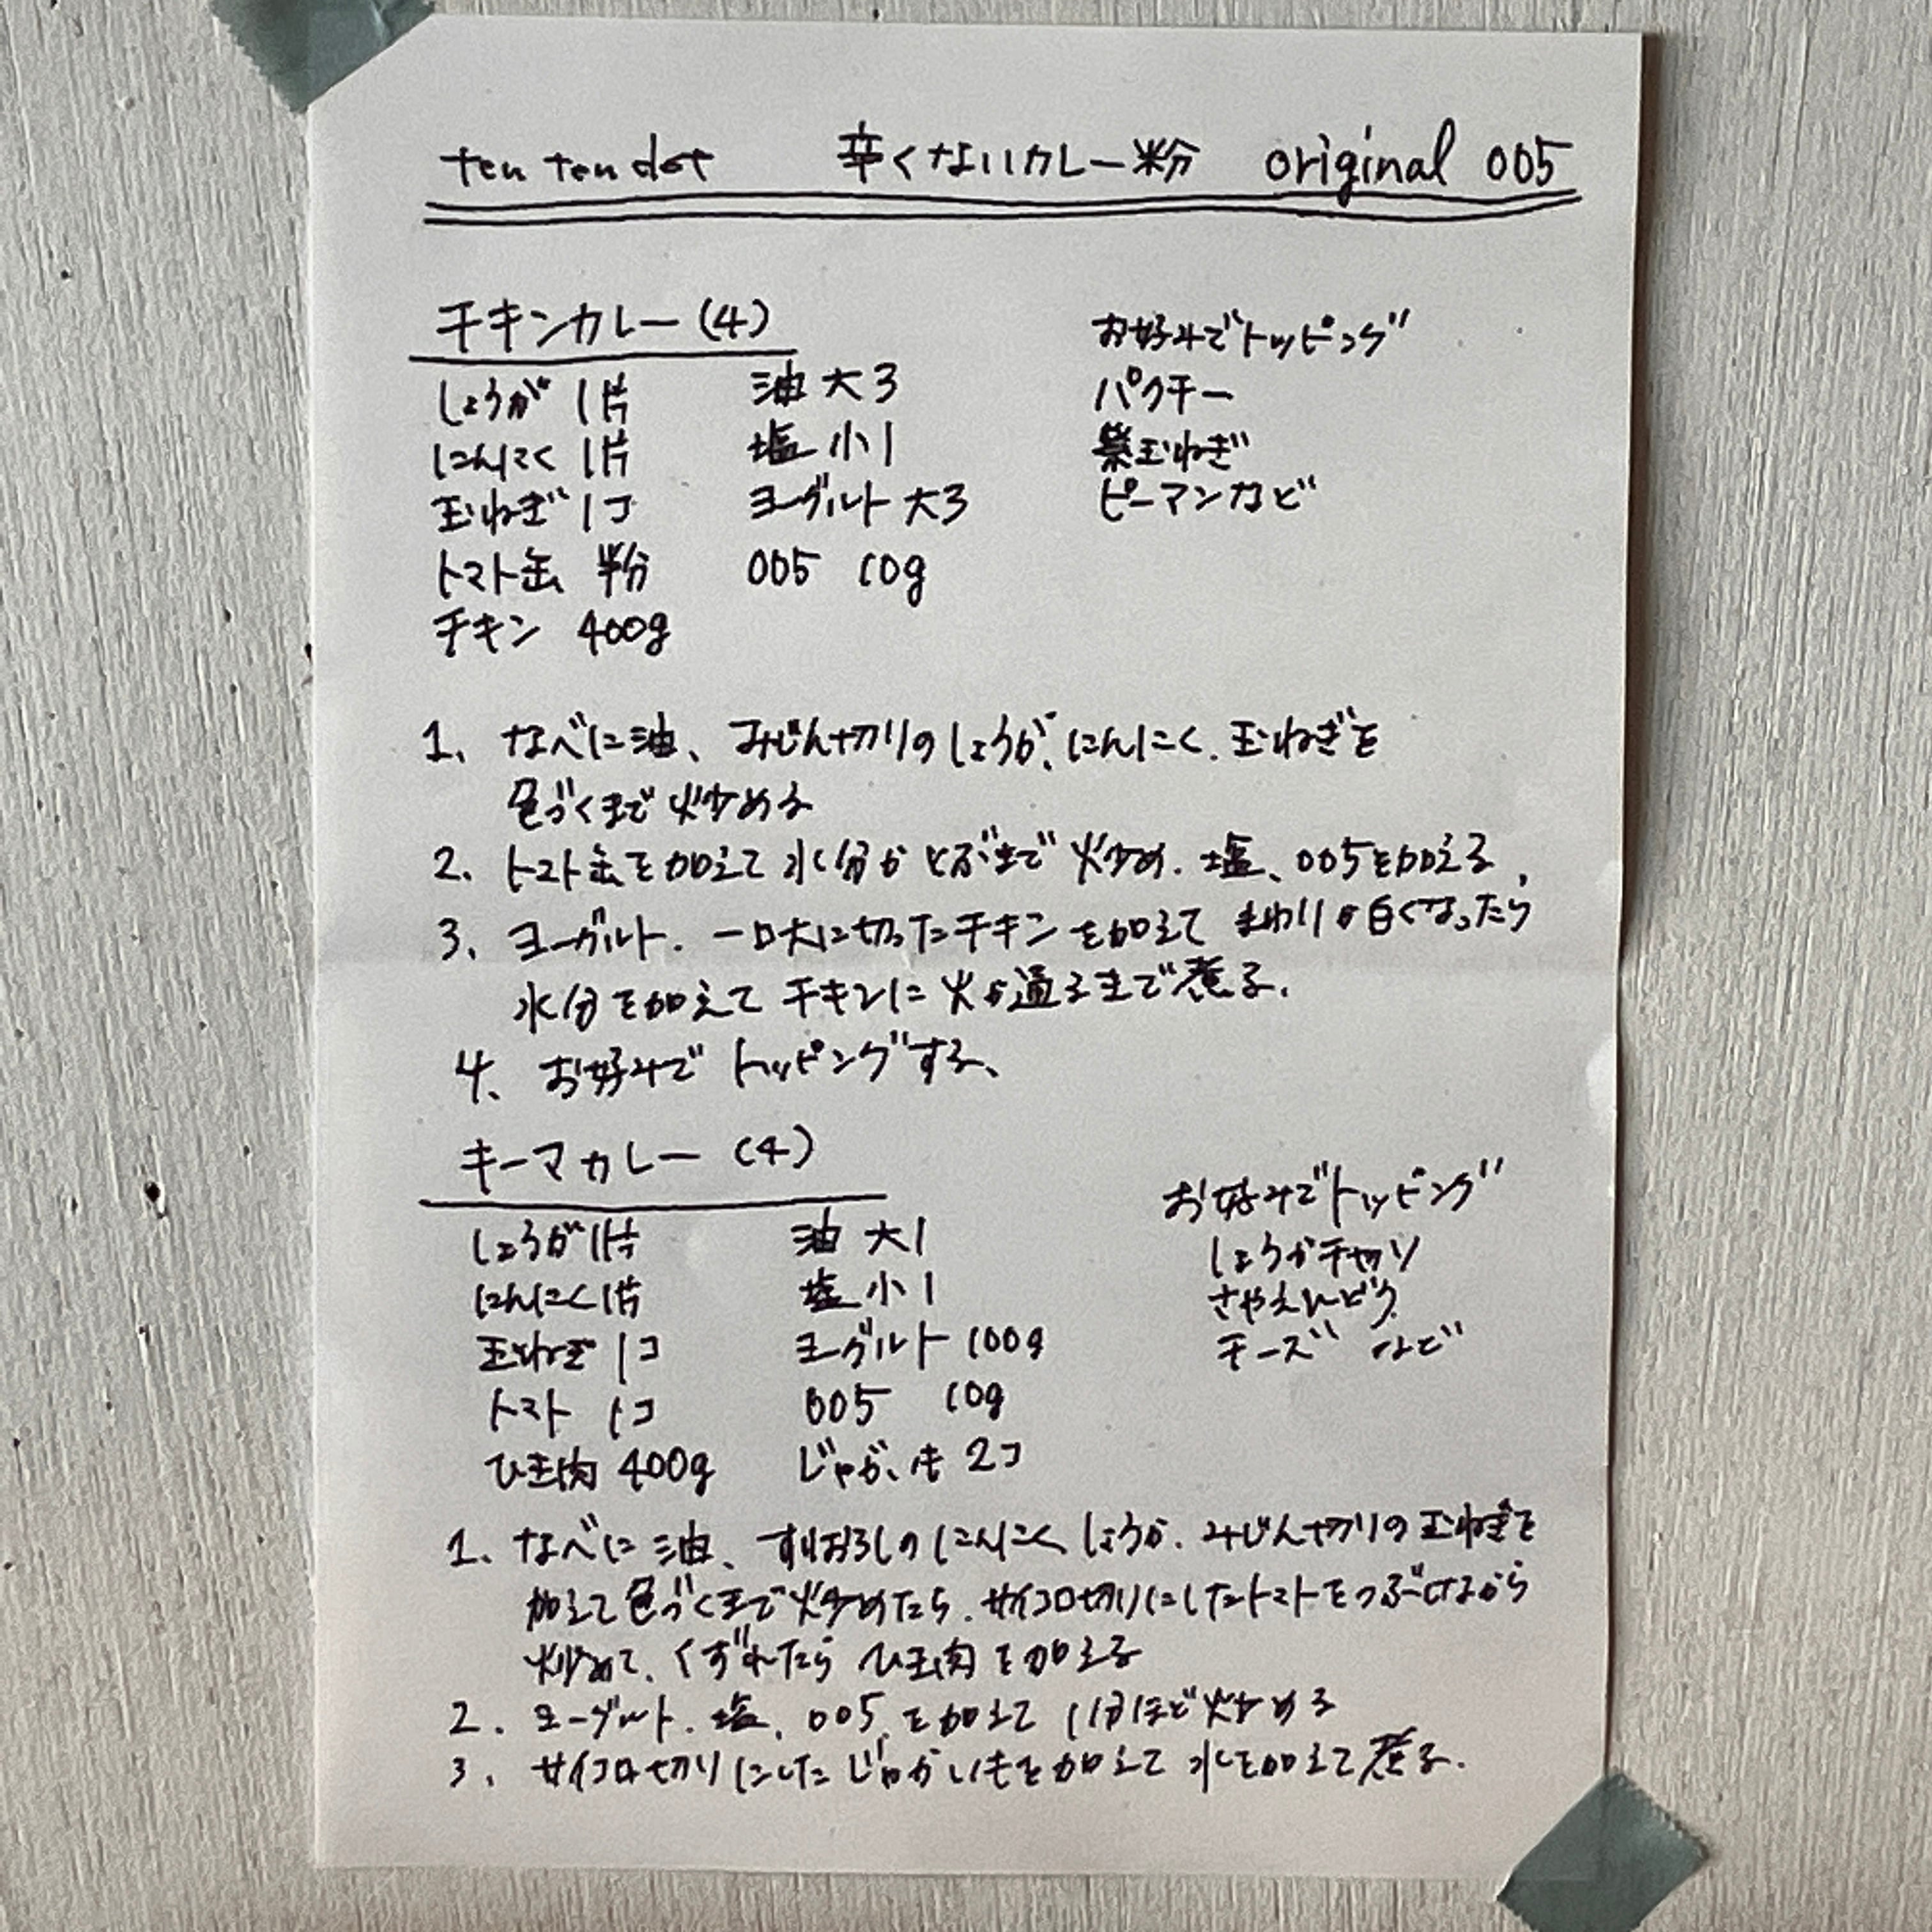 ten ten dot 辛くないカレー粉 original 005
チキンカレー(4)
しょうが 1片 油 大3
にんにく 1片 塩 小1
玉ねぎ 1コ ヨーグルト 大3
トマト缶 半分 005 10g
チキン 400g
お好みでトッピング
パクチー
紫玉ねぎ
ピーマンなど
1. なべに油、みじん切りのしょうが、にんにく、玉ねぎを
色づくまで炒める
2. トマト缶を加えて水分がとぶまで炒め、塩、005を加える、
3. ヨーグルト、一口大に切ったチキンを加えて まわりが白くなったら
水分を加えて チキンに火が通るまで煮る。
4. お好みで トッピングする、
キーマカレー (4)
しょうが 1片 油 大1
にんにく 1片 塩 小1
玉ねぎ 1コ ヨーグルト 100g
トマト 1コ 005 10g
ひき肉 400g じゃがいも 2コ
お好みでトッピング
しょうが千切り
さやえんどう
チーズ など
1. なべに油、すりおろしのにんにく、しょうが、みじん切りの玉ねぎを
加えて色づくまで炒めたら、サイコロ切りにしたトマトをつぶしながら
炒めて、くずれたら ひき肉を加える
2. ヨーグルト、塩、005、を加えて 1分ほど炒める
3. サイコロ切りにした じゃがいもを加えて 水を加えて煮る.